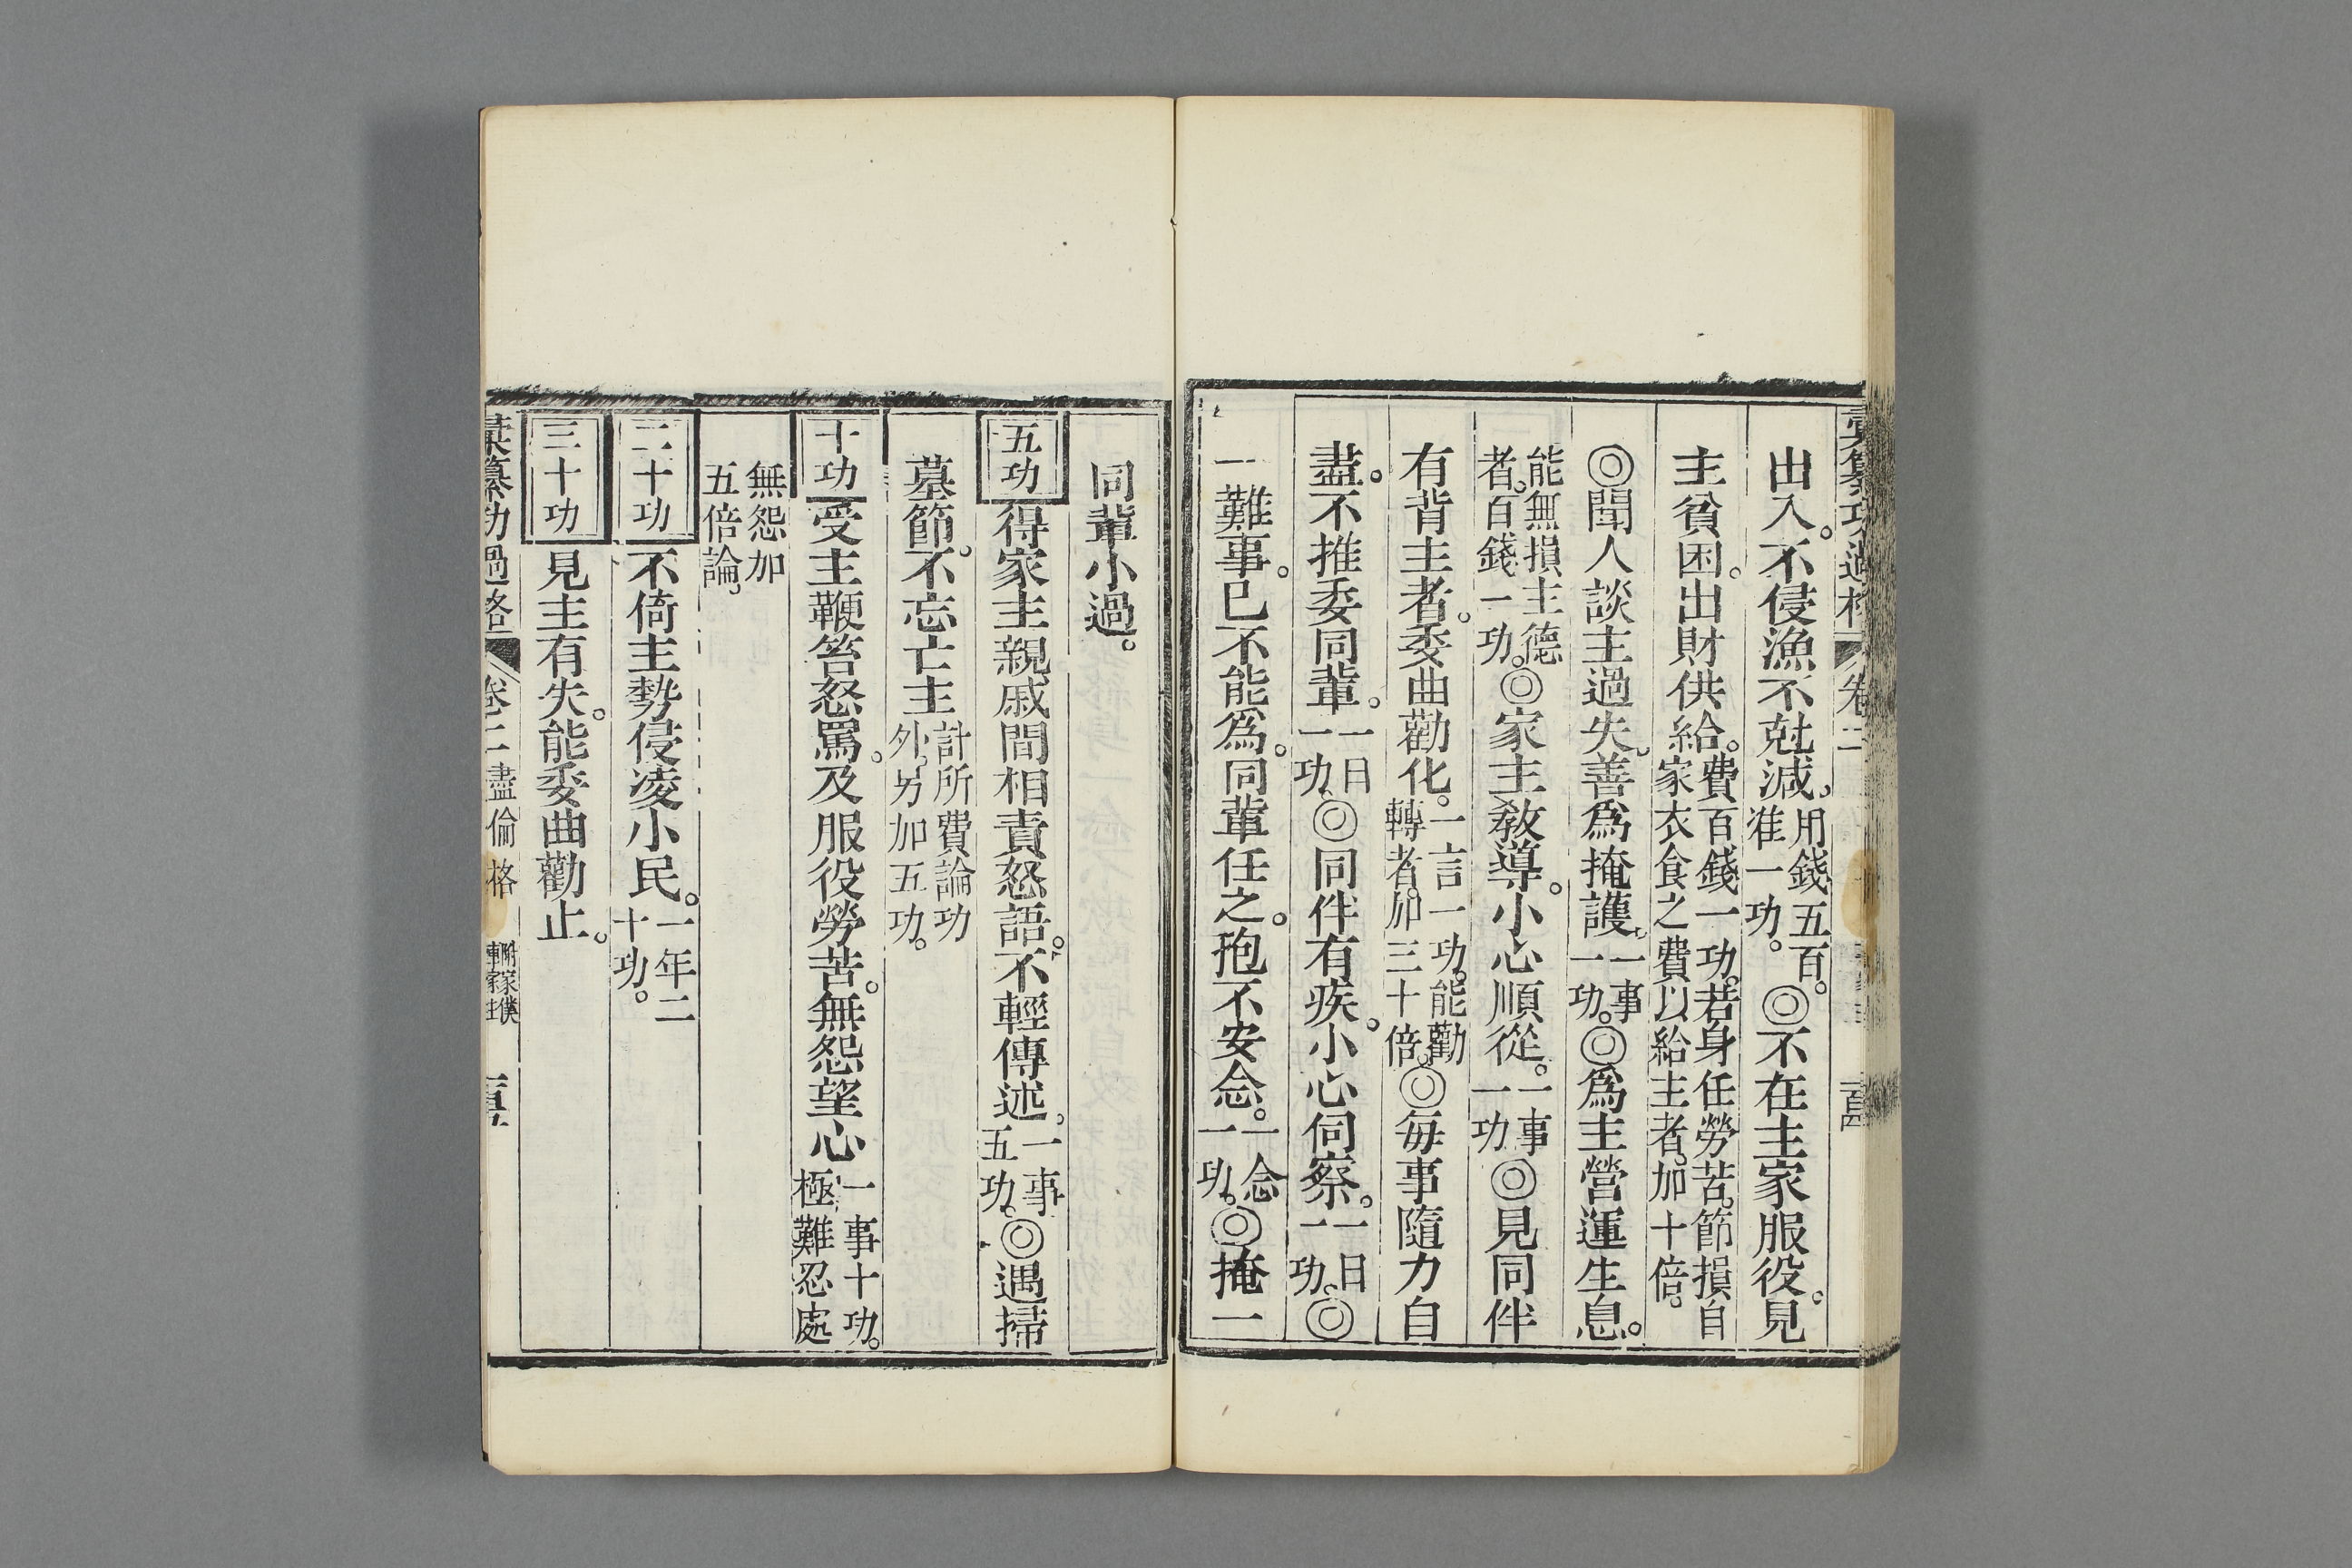 彙纂功過格 卷二
出入。不侵漁不尅減。用錢五百。准一功。◎不在主家服役。見
主貧困。出財供給。費百錢一功。若身任勞苦。節損自家衣食之費以給主者。加十倍。
◎聞人談主過失。善爲掩護。一事一功。◎爲主營運生息。
能無損主德者。百錢一功。◎家主敎導。小心順從。一事一功◎見同伴
有背主者。委曲勸化。一言一功。能勸轉者。加三十倍。◎每事隨力自
盡。不推委同輩。一日一功。◎同伴有疾。小心伺察。一日一功。◎
一難事。已不能爲。同輩任之。抱不安念。一念一功。◎掩一
同輩小過。
五功 得家主親戚間相責怒語。不輕傳述。一事五功。◎遇掃
墓節。不忘亡主計所費論功外。另加五功。
十功 受主鞭笞怒罵。及服役勞苦。無怨望心一事十功。極難忍處
無怨加五倍論。
二十功 不倚主勢侵凌小民。一年二十功。
三十功 見主有失。能委曲勸止。
彙纂功過格 卷二 盡倫格 附家僕事家主